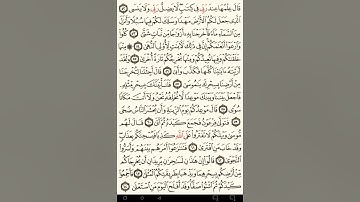 قَالَ عِلْمُهَا عِندَ رَبِّي فِي كِتَٰبٍ لَّا يَضِلُّ رَبِّي وَلَا يَنسَى ٥٢
ٱلَّذِي جَعَلَ لَكُمُ ٱلْأَرْضَ مَهْدًا وَسَلَكَ لَكُمْ فِيهَا سُبُلًا وَأَنزَلَ
مِنَ ٱلسَّمَآءِ مَآءً فَأَخْرَجْنَا بِهِۦٓ أَزْوَٰجًا مِّن نَّبَاتٍ شَتَّىٰ ٥٣
كُلُوا۟ وَٱرْعَوْا۟ أَنْعَٰمَكُمْ إِنَّ فِي ذَٰلِكَ لَءَايَٰتٍ لِّأُو۟لِي ٱلنُّهَىٰ ٥٤ ۞ مِنْهَا
خَلَقْنَٰكُمْ وَفِيهَا نُعِيدُكُمْ وَمِنْهَا نُخْرِجُكُمْ تَارَةً أُخْرَىٰ ٥٥ وَلَقَدْ
أَرَيْنَٰهُ ءَايَٰتِنَا كُلَّهَا فَكَذَّبَ وَأَبَىٰ ٥٦ قَالَ أَجِئْتَنَا لِتُخْرِجَنَا
مِنْ أَرْضِنَا بِسِحْرِكَ يَٰمُوسَىٰ ٥٧ فَلَنَأْتِيَنَّكَ بِسِحْرٍ مِّثْلِهِۦ
فَٱجْعَلْ بَيْنَنَا وَبَيْنَكَ مَوْعِدًا لَّا نُخْلِفُهُۥ نَحْنُ وَلَآ أَنتَ مَكَانًا
سُوًى ٥٨ قَالَ مَوْعِدُكُمْ يَوْمُ ٱلزِّينَةِ وَأَن يُحْشَرَ ٱلنَّاسُ
ضُحًى ٥٩ فَتَوَلَّىٰ فِرْعَوْنُ فَجَمَعَ كَيْدَهُۥ ثُمَّ أَتَىٰ ٦٠ قَالَ لَهُم
مُّوسَىٰ وَيْلَكُمْ لَا تَفْتَرُوا۟ عَلَى ٱللَّهِ كَذِبًا فَيُسْحِتَكُم بِعَذَابٍ
وَقَدْ خَابَ مَنِ ٱفْتَرَىٰ ٦١ فَتَنَٰزَعُوٓا۟ أَمْرَهُم بَيْنَهُمْ وَأَسَرُّوا۟
ٱلنَّجْوَىٰ ٦٢ قَالُوٓا۟ إِنْ هَٰذَٰنِ لَسَٰحِرَٰنِ يُرِيدَانِ أَن يُخْرِجَاكُم
مِّنْ أَرْضِكُم بِسِحْرِهِمَا وَيَذْهَبَا بِطَرِيقَتِكُمُ ٱلْمُثْلَىٰ ٦٣ فَأَجْمِعُوا۟
كَيْدَكُمْ ثُمَّ ٱئْتُوا۟ صَفًّا وَقَدْ أَفْلَحَ ٱلْيَوْمَ مَنِ ٱسْتَعْلَىٰ ٦٤